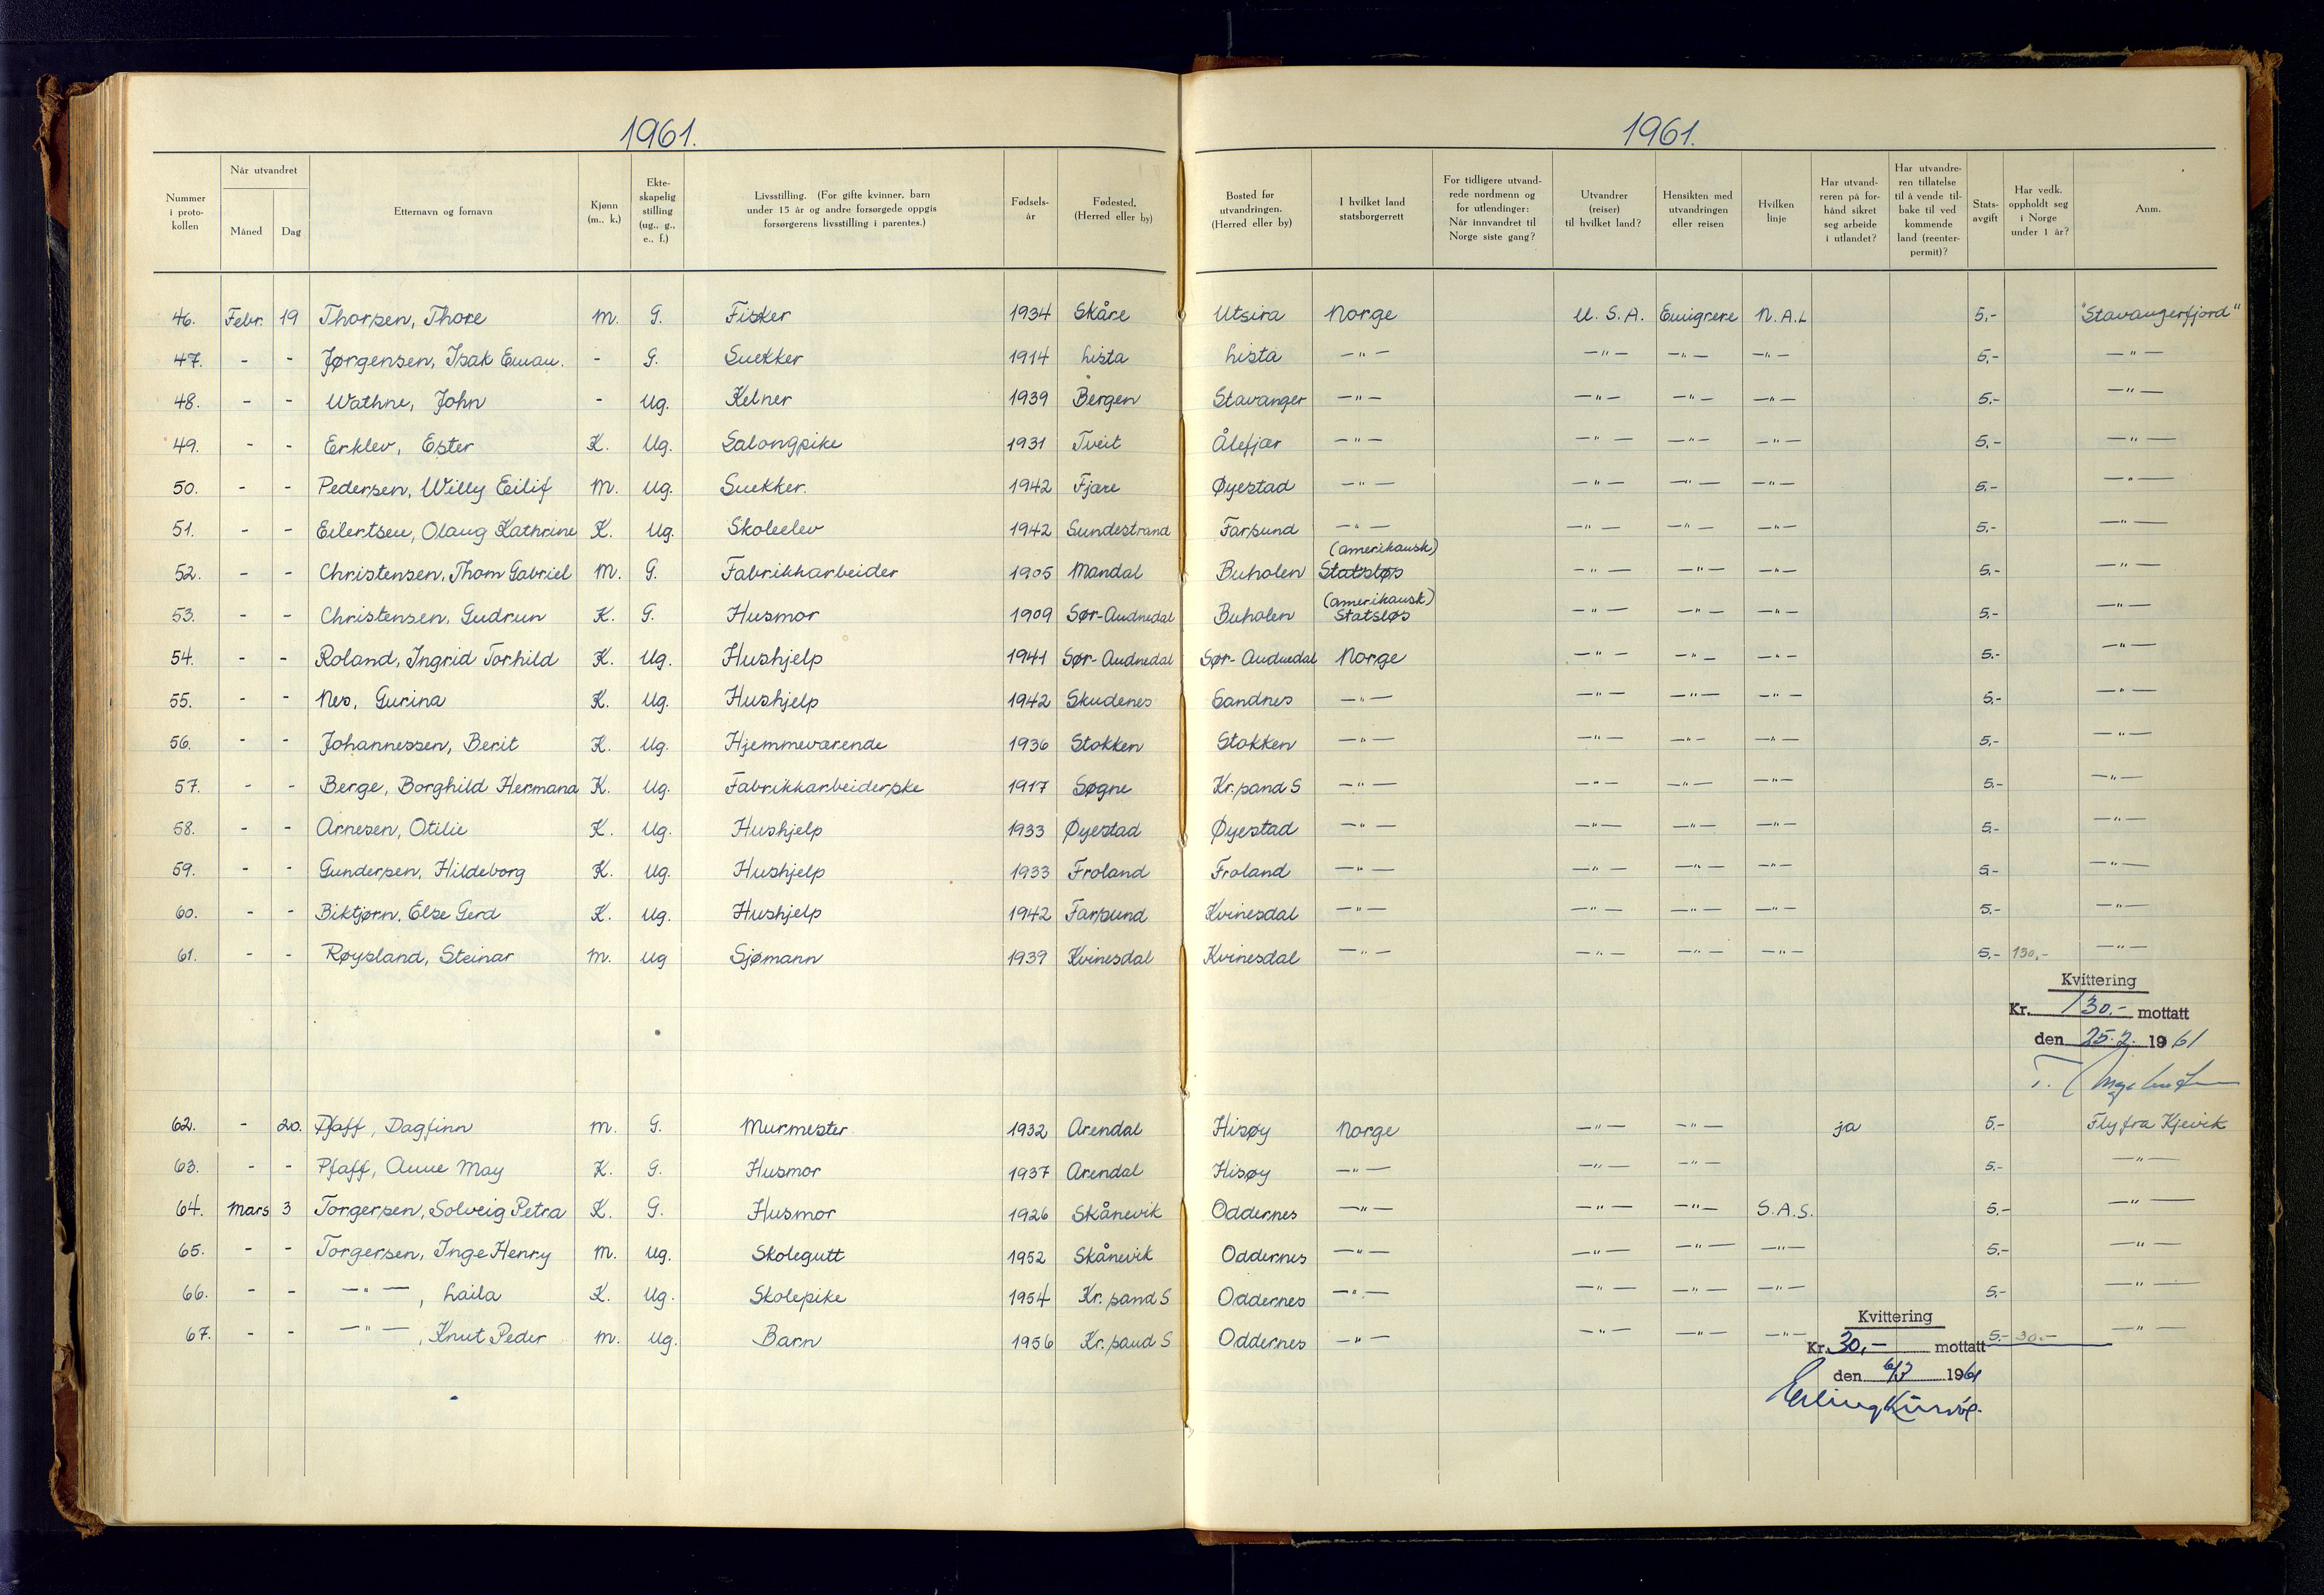 1961.
1961.
Nummer i proto- kollen | Når utvandret | Måned | Dag | Etternavn og fornavn | Kjønn (m., k.) | Ekte- skapelig stilling (ug., g., e., f.) | Livsstilling. (For gifte kvinner, barn under 15 år og andre forsørgede oppgis forsørgerens livsstilling i parentes.) | Fødsels- år | Fødested. (Herred eller by) | Bosted før utvandringen. (Herred eller by) | I hvilket land statsborgerrett | For tidligere utvand- rede nordmenn og for utlendinger: Når innvandret til Norge siste gang? | Utvandrer (reiser) til hvilket land? | Hensikten med utvandringen eller reisen | Hvilken linje | Har utvand- reren på for- hånd sikret seg arbeide i utlandet? | Har utvandre- ren tillatelse til å vende til- bake til ved kommende land (reenter- permit)? | Stats- avgift | Har vedk. oppholdt seg i Norge under 1 år? | Anm.
46. Febr. 19 Thorsen, Thore m. G. Fisker 1934 Skåre Utsira Norge U.S.A. Emigrere N.A.L 5,- "Stavangerfjord"
47. - - Jørgensen, Isak Eman. - G. Snekker 1914 Lista Lista -"- -"- -"- -"- 5,- -"-
48. - - Wathne, John - Ug. Kelner 1939 Bergen Stavanger -"- -"- -"- -"- 5,- -"-
49. - - Erklev, Ester K. Ug. Salongpike 1931 Tveit Ålefjær -"- -"- -"- -"- 5,- -"-
50. - - Pedersen, Willy Eilif M. Ug. Snekker. 1942 Fjære Øyestad -"- -"- -"- -"- 5,- -"-
51. - - Eilertsen, Olaug Kathrine K. Ug. Skoleelev 1942 Sundestrand Farsund -"- -"- -"- -"- 5,- -"-
(amerikansk)
52. - - Christensen, Thom Gabriel M. G. Fabrikkarbeider 1905 Mandal Buholen Statsløs -"- -"- -"- 5,- -"-
(amerikansk)
53. - - Christensen, Gudrun K. G. Husmor 1909 Sør-Audnedal Buholen Statsløs -"- -"- -"- 5,- -"-
54. - - Roland, Ingrid Torhild K. Ug. Hushjelp 1941 Sør-Audnedal Sør-Audnedal Norge -"- -"- -"- 5,- -"-
55. - - Nes, Gurina K. Ug. Hushjelp 1942 Skudenes Sandnes -"- -"- -"- -"- 5,- -"-
56. - - Johannessen, Berit K. Ug. Hjemmeværende 1936 Stokken Stokken -"- -"- -"- -"- 5,- -"-
57. - - Berge, Borghild Hermana K. Ug. Fabrikkarbeiderske 1917 Søgne Kr.sand S -"- -"- -"- -"- 5,- -"-
58. - - Arnesen, Otilie K. Ug. Hushjelp 1933 Øyestad Øyestad -"- -"- -"- -"- 5,- -"-
59. - - Gundersen, Hildeborg K. Ug. Hushjelp 1933 Froland Froland -"- -"- -"- -"- 5,- -"-
60. - - Biktjørn, Else Gerd K. Ug. Hushjelp 1942 Farsund Kvinesdal -"- -"- -"- -"- 5,- -"-
61. - - Røysland, Steinar M. Ug Sjømann 1939 Kvinesdal Kvinesdal -"- -"- -"- -"- 5,- 130,- -"-
Kvittering
Kr. 130.- mottatt
den 25.2. 1961
62. - 20. Pfaff, Dagfinn m. G. Murmester 1932 Arendal Hisøy Norge -"- -"- ja 5,- Fly fra Kjevik
63. - - Pfaff, Anne May K. G. Husmor 1937 Arendal Hisøy -"- -"- -"- 5,- -"-
64. Mars 3 Torgersen, Solveig Petra K. G. Husmor 1926 Skånevik Oddernes -"- -"- -"- S.A.S. 5,- -"-
65. - - Torgersen, Inge Henry M. Ug. Skolegutt 1952 Skånevik Oddernes -"- -"- -"- -"- 5,- -"-
66. - - -"-, Laila K. Ug. Skolepike 1954 Kr.sand S Oddernes -"- -"- -"- -"- 5,- -"-
67. - - -"-, Knut Peder M. Ug. Barn 1956 Kr.sand S Oddernes -"- -"- -"- -"- 5,- 30,- -"-
Kvittering
Kr. 30,- mottatt
den 6/3 1961
Erling